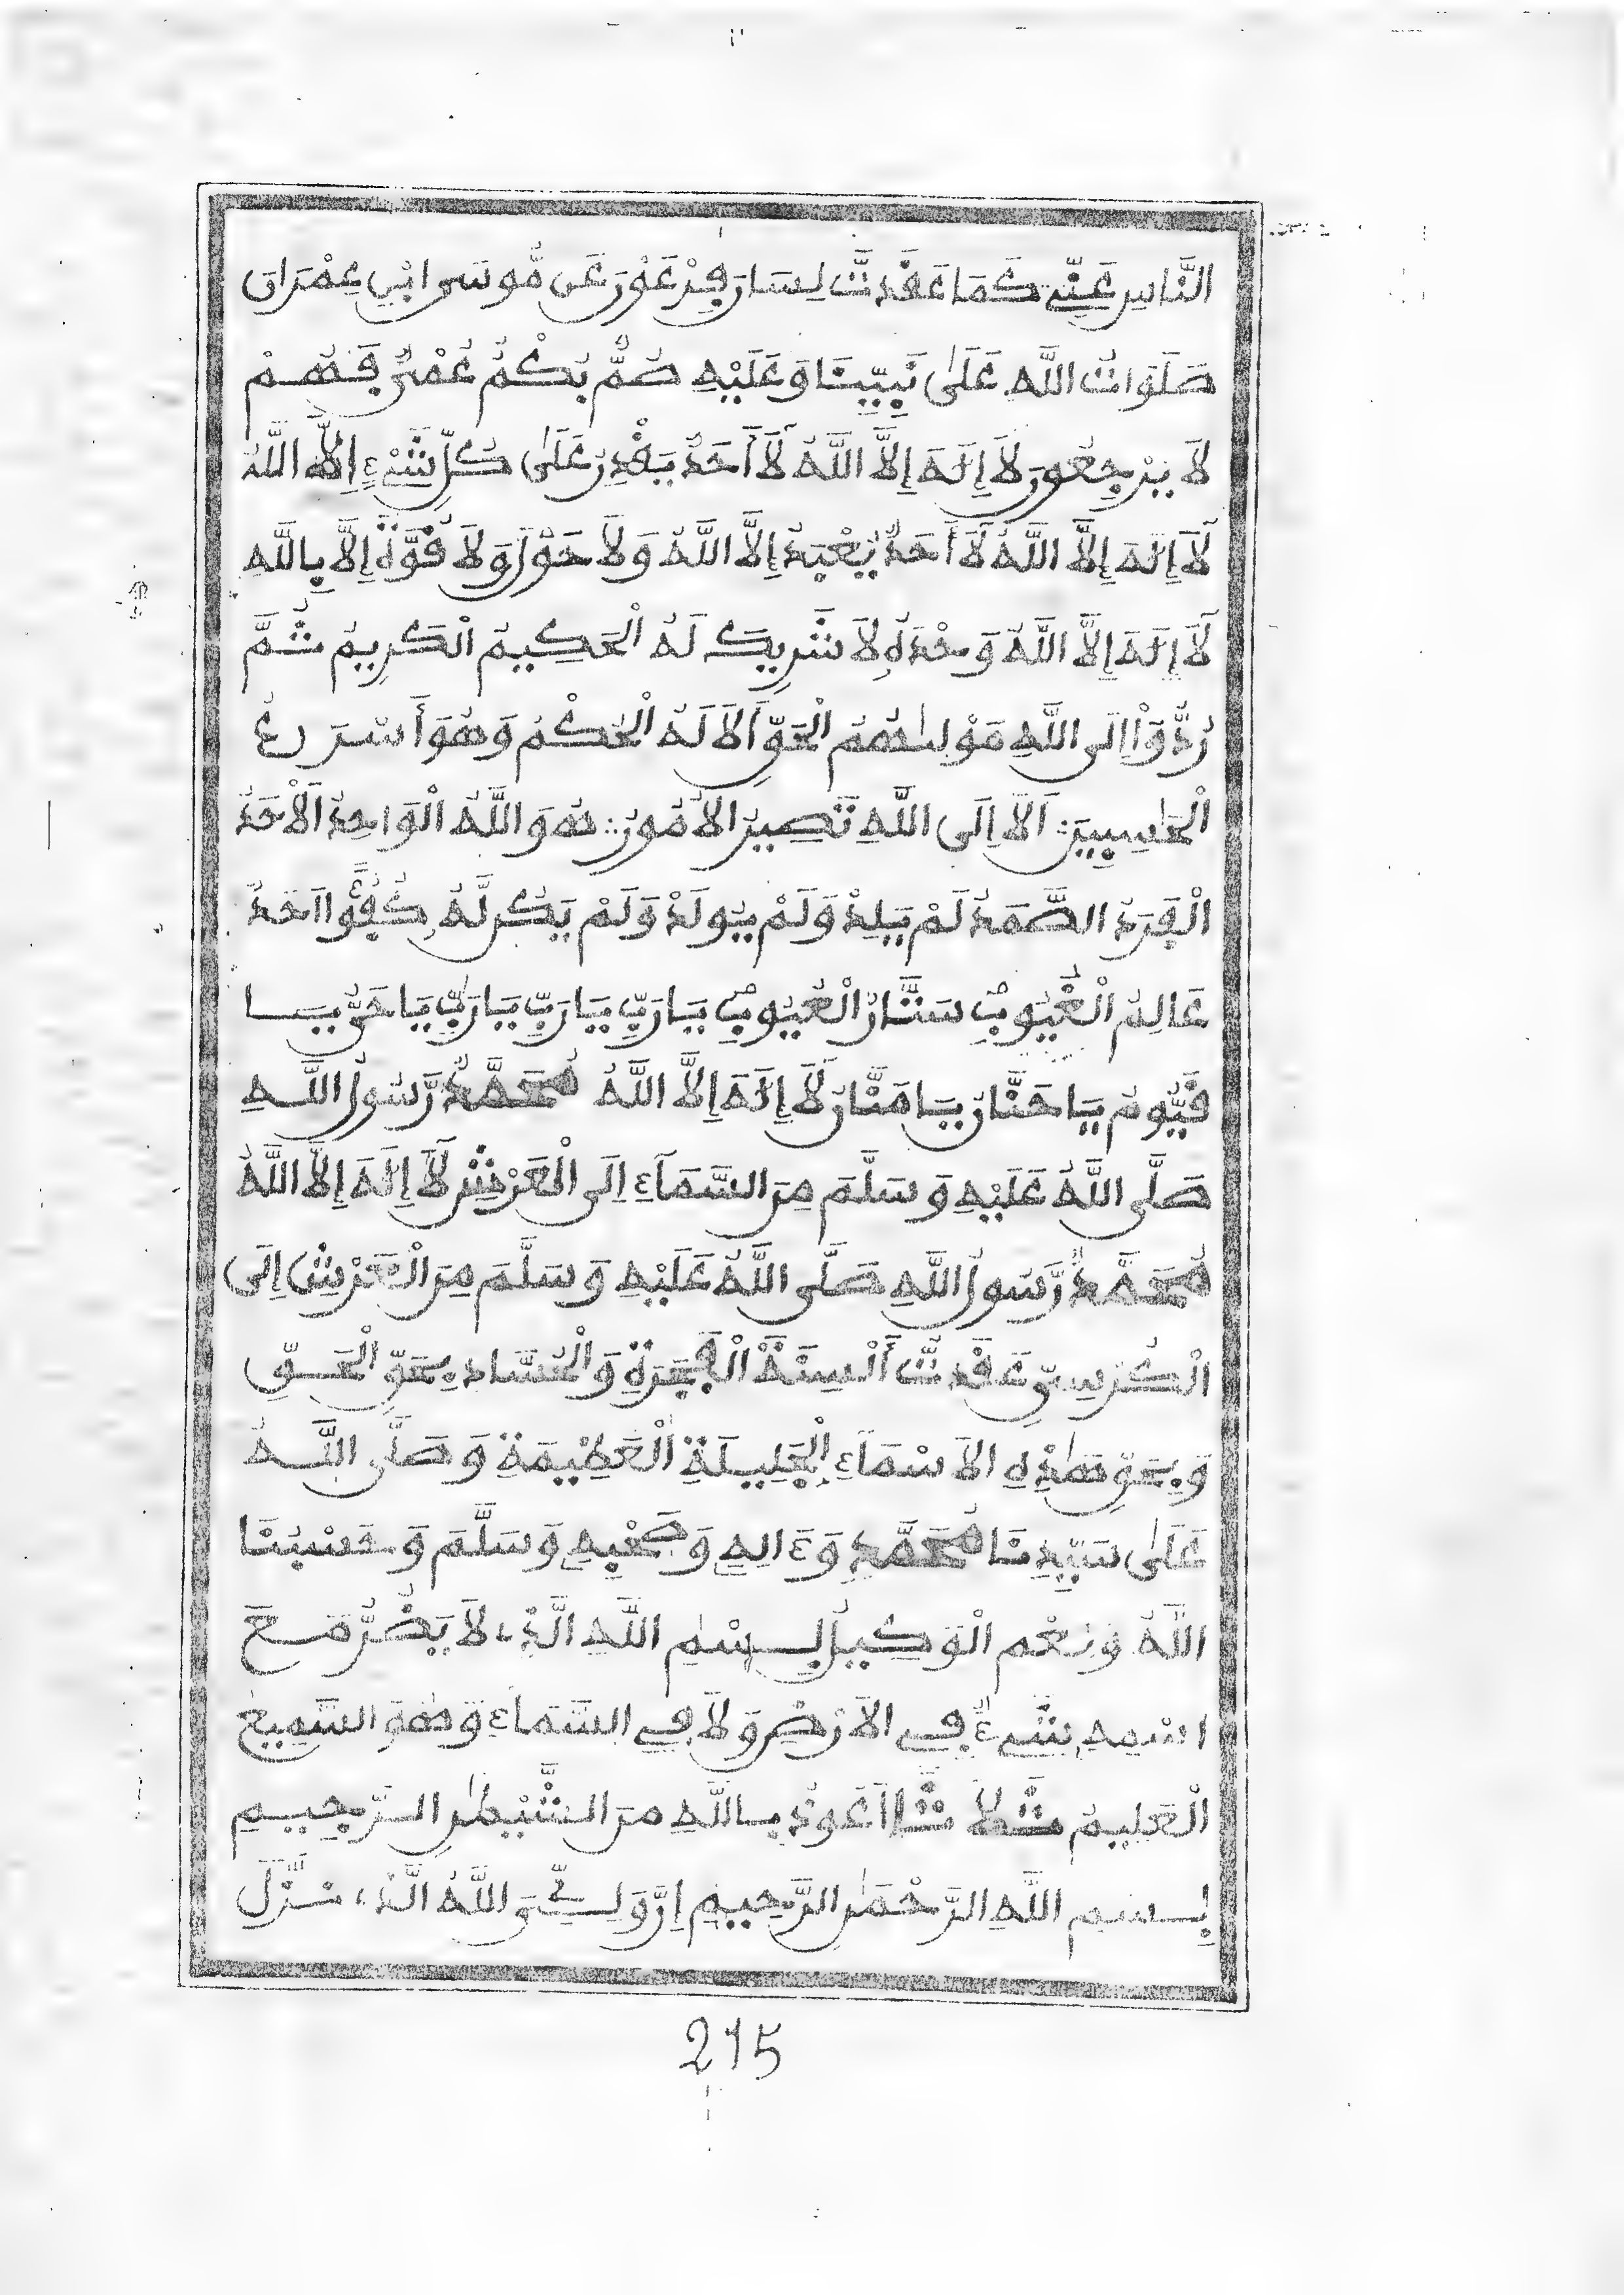 النَّاسِ عَنِّي كَمَا عَقَدْتَّ لِسَانَ فِرْعَوْنَ عَن مُّوسَى ابْنِ عِمْرَانَ
صَلَوَاتُ اللَّهِ عَلَى نَبِيِّنَا وَعَلَيْهِ صُمٌّ بُكْمٌ عُمْيٌ فَهُمْ
لَا يَرْجِعُونَ لَا إِلَهَ إِلَّا اللَّهُ لَا أَحَدٌ يَقْدِرُ عَلَى كُلِّ شَيْءٍ إِلَّا اللَّهُ
لَا إِلَهَ إِلَّا اللَّهُ لَا أَحَدٌ يُعْبَدُ إِلَّا اللَّهُ وَلَا حَوْلَ وَلَا قُوَّةَ إِلَّا بِاللَّهِ
لَا إِلَهَ إِلَّا اللَّهُ وَحْدَهُ لَا شَرِيكَ لَهُ الْحَكِيمُ الْكَرِيمُ ثُمَّ
رُدُّوا إِلَى اللَّهِ مَوْلَاهُمُ الْحَقِّ أَلَا لَهُ الْحُكْمُ وَهُوَ أَسْرَعُ
الْحَاسِبِينَ أَلَا إِلَى اللَّهِ تَصِيرُ الْأُمُورُ هُوَ اللَّهُ الْوَاحِدُ الْأَحَدُ
الْفَرَدُ الصَّمَدُ لَمْ يَلِدْ وَلَمْ يُولَدْ وَلَمْ يَكُن لَّهُ كُفُؤًا أَحَدٌ
عَالِمُ الْغُيُوبِ سَتَّارُ الْعُيُوبِ يَا رَبِّ يَا رَبِّ يَا رَبِّ يَا حَيُّ يَا
قَيُّومُ يَا حَنَّانُ يَا مَنَّانُ لَا إِلَهَ إِلَّا اللَّهُ مُحَمَّدٌ رَّسُولُ اللَّهِ
صَلَّى اللَّهُ عَلَيْهِ وَسَلَّمَ مِنَ السَّمَاءِ إِلَى الْعَرْشِ لَا إِلَهَ إِلَّا اللَّهُ
مُحَمَّدٌ رَّسُولُ اللَّهِ صَلَّى اللَّهُ عَلَيْهِ وَسَلَّمَ مِنَ الْعَرْشِ إِلَى
الْكُرْسِيِّ عَقَدْتُّ أَلْسِنَةَ الْفَجَرَةِ وَالْحُسَّادِ بِحَقِّ الْحَقِّ
وَبِحَقِّ هَذِهِ الْأَسْمَاءِ الْجَلِيلَةِ الْعَظِيمَةِ وَصَلَّى اللَّهُ
عَلَى سَيِّدِنَا مُحَمَّدٍ وَءَالِهِ وَصَحْبِهِ وَسَلَّمَ وَحَسْبُنَا
اللَّهُ وَنِعْمَ الْوَكِيلُ بِسْمِ اللَّهِ الَّذِي لَا يَضُرُّ مَعَ
اسْمِهِ شَيْءٌ فِي الْأَرْضِ وَلَا فِي السَّمَاءِ وَهُوَ السَّمِيعُ
الْعَلِيمُ ثَلَاثًا أَعُوذُ بِاللَّهِ مِنَ الشَّيْطَانِ الرَّجِيمِ
بِسْمِ اللَّهِ الرَّحْمَنِ الرَّحِيمِ إِنَّ وَلِيِّيَ اللَّهُ الَّذِي نَزَّلَ
215